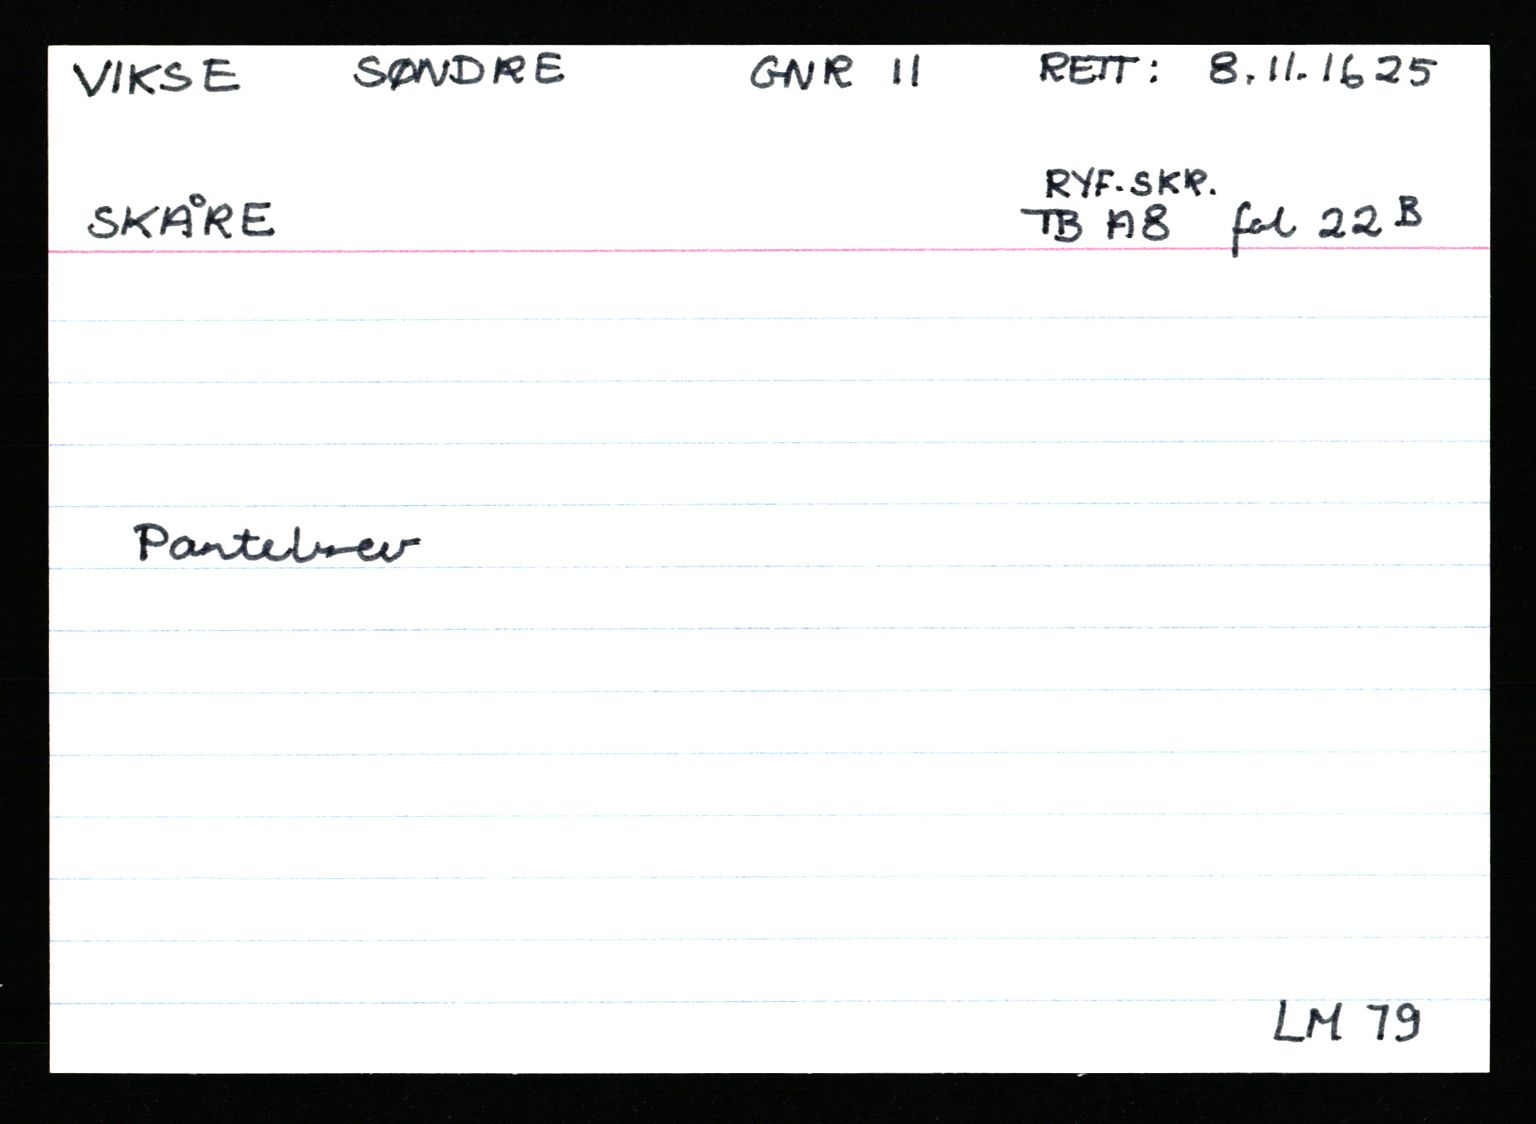 VIKSE SØNDRE GNR 11 RETT: 8.11.1625
RYF.SKR.
SKÅRE TB A8 fol 22 B
Pantebrev
LM 79